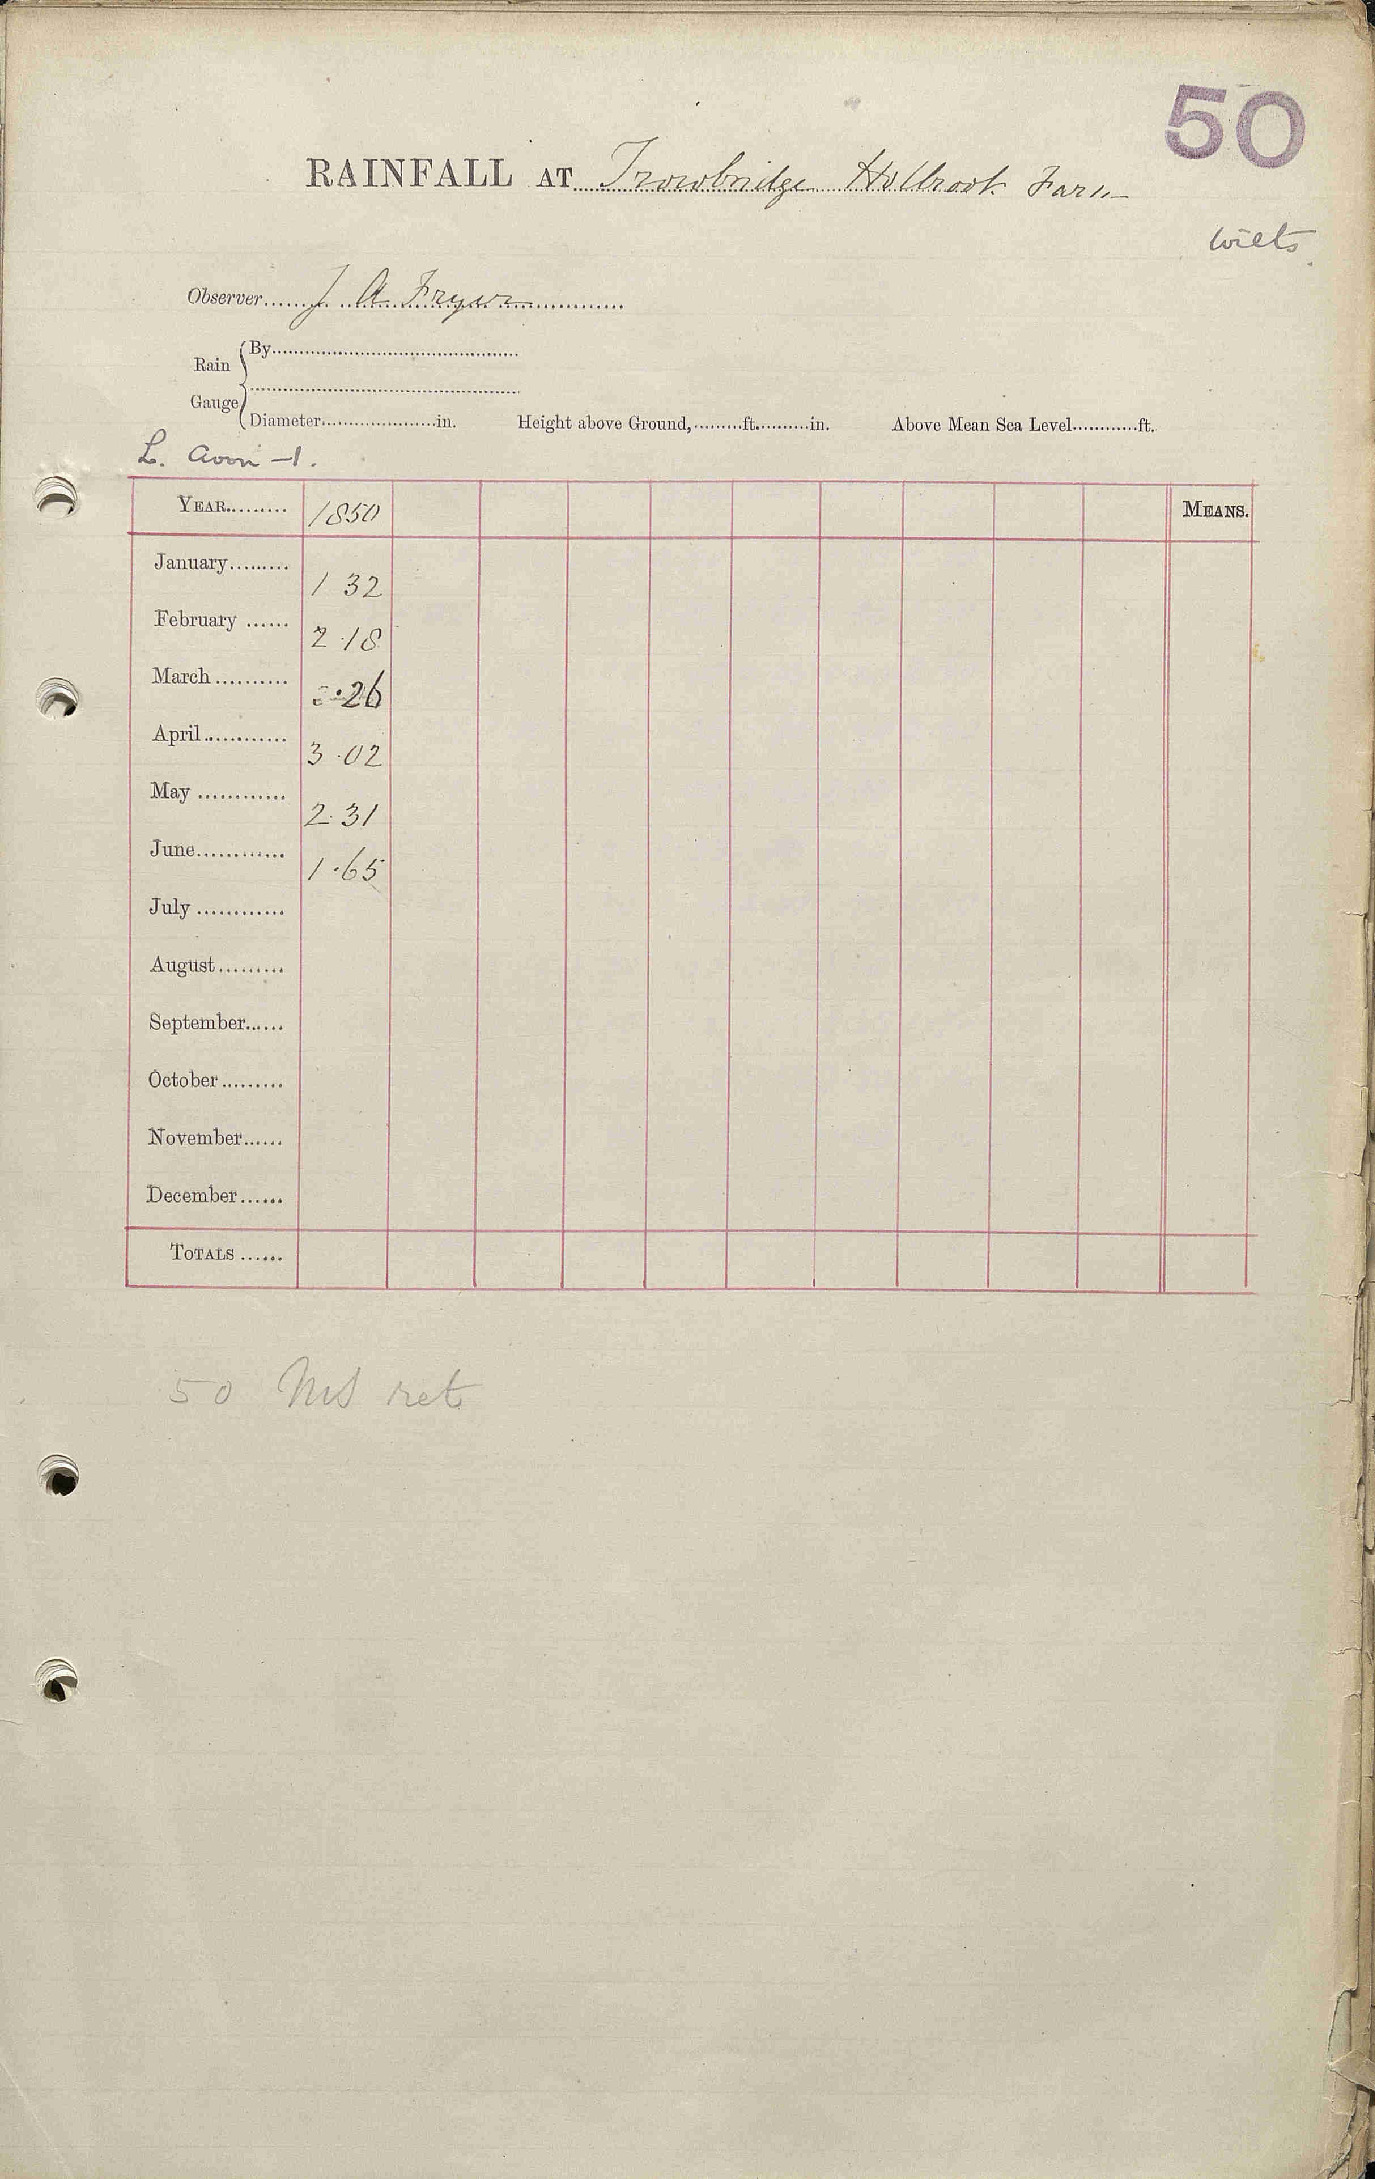 50
RAINFALL AT Trowbridge Holbrook Farm
Wilts.
Observer J A Fryer
Rain Gauge
By
Diameter in. Height above Ground, ft. in. Above Mean Sea Level ft.
L. Avon -1.
YEAR 1850 MEANS.
January 1 32
February 2.18
March 2.26
April 3.02
May 2.31
June 1.65
July
August
September
October
November
December
TOTALS
50 MS ret